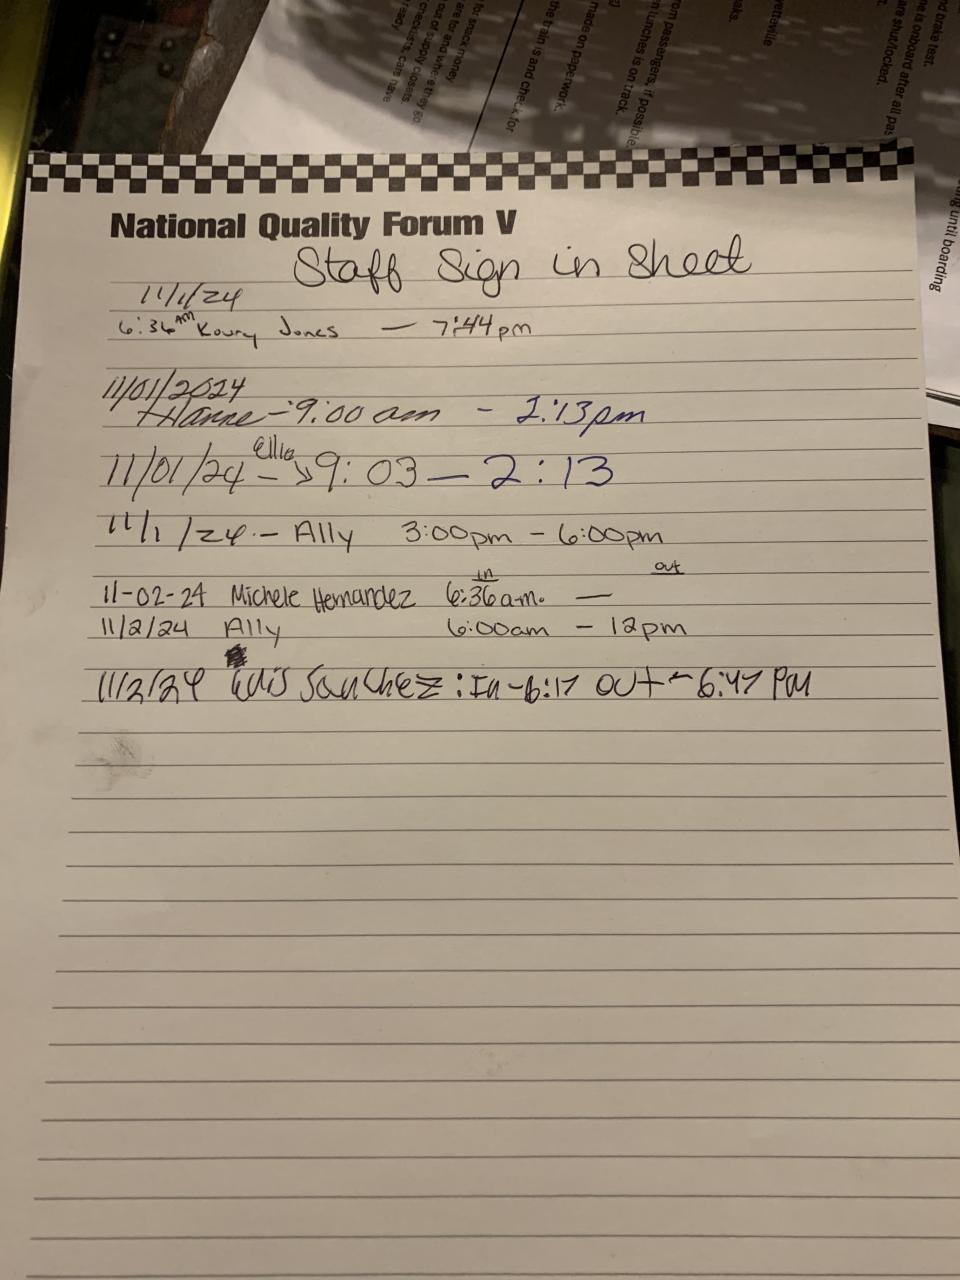 for snack money
are for and where they go
out of supply closets.
checklists, cars have
ready
the train is and check for
made on paperwork.
n lunches is on track.
rom passengers, if possible
yetteville
nd brake test.
ne is onboard after all pas
are shut/locked.
ing until boarding
National Quality Forum V
Staff Sign in Sheet
11/1/24
6:36 AM Koury Jones — 7:44pm
11/01/2024
Hanne - 9:00 am - 2:13pm
11/01/24 - Ellie → 9:03 — 2:13
11/1/24 - Ally 3:00pm - 6:00pm
in out
11-02-24 Michele Hernandez 6:36 a.m. —
11/2/24 Ally 6:00am - 12pm
11/2/24 Sanchez : In - 6:17 out - 6:47 PM